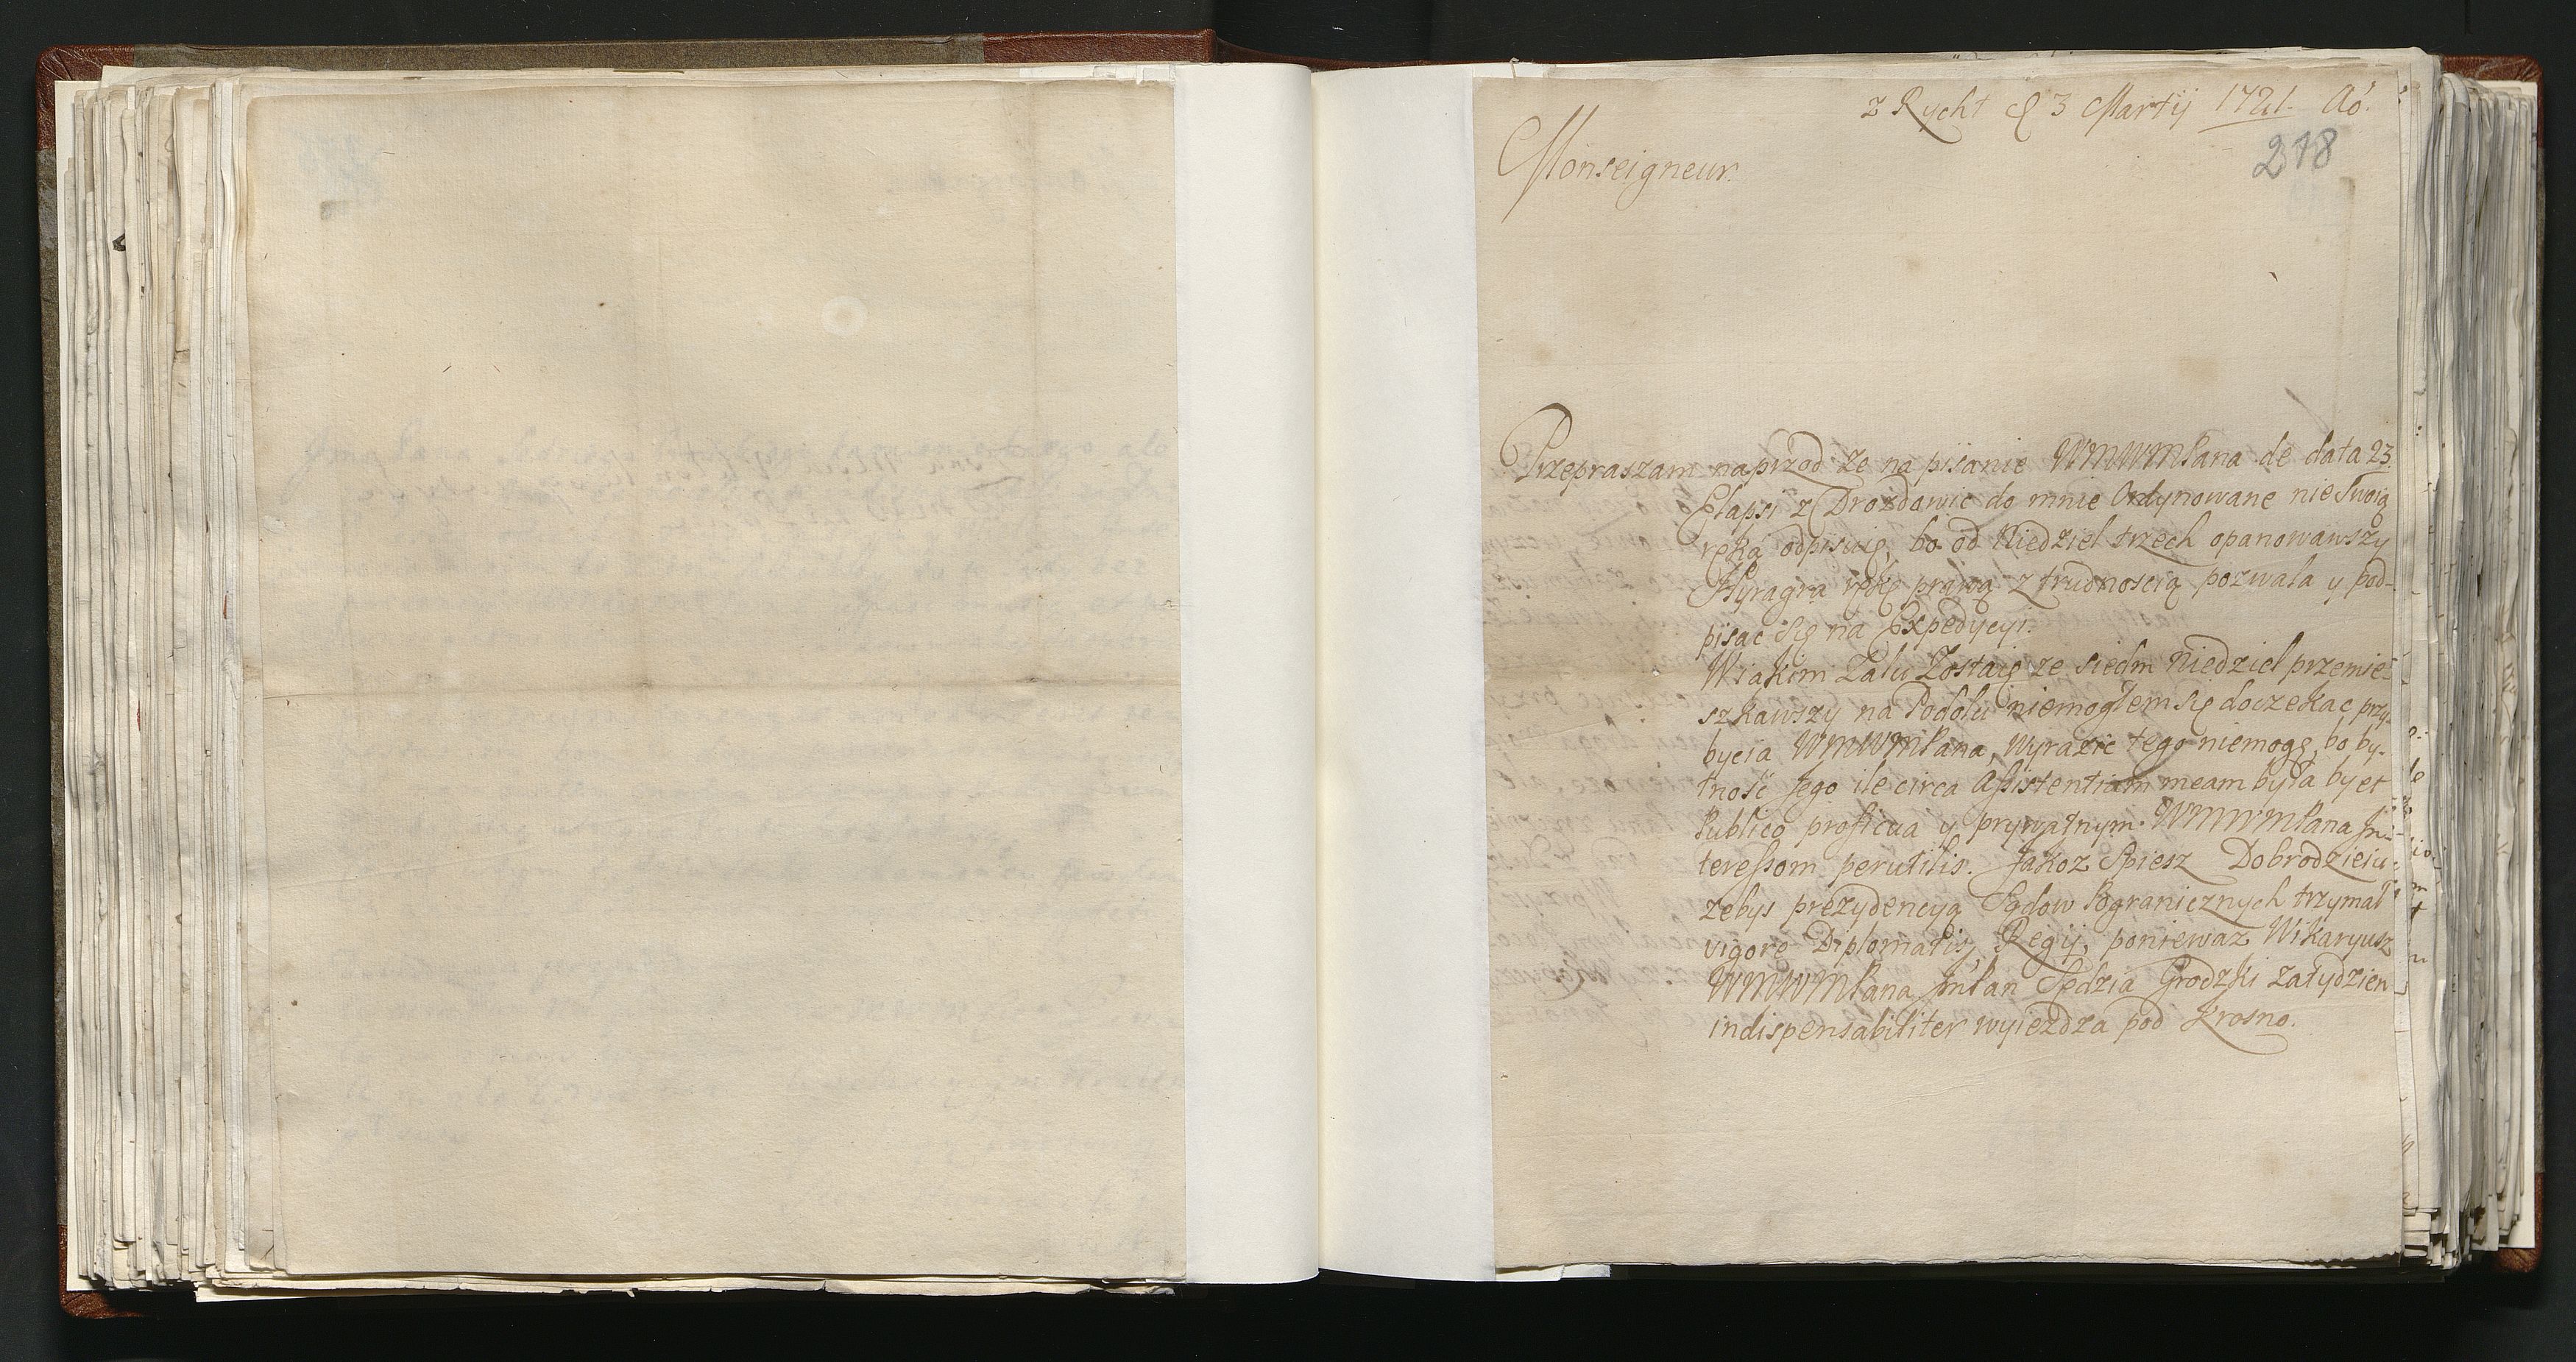 z Rycht d 3 Martij 1721. Ao.
218
Monseigneur.
Przepraszam naprzod ze na pisanie WMWMPana de data 23.
Elapsi z Drozdowic do mnie Ordynowane nie swoią
ręką odpisuię, bo od Niedziel trzech opanowawszy
Hyragra rękę prawą z trudnoscią pozwala y pod-
pisac się na Expedycyi.
W iakim Zalu Zostaię ze siedm Niedziel przemie-
szkawszy na Podolu niemogłem się doczekac przy-
bycia WMWMPana, Wyrazic tego niemogę, bo by-
tność Jego ile circa Assistentiam meam była by et
Publico proficua y prywatnym WMWMPana In-
teressom perutilis. Jakoz Spiesz Dobrodzieiu
zebys prezydencyą Sądow Pogranicznych trzymał
vigore Diplomatis Regij, poniewaz Wikaryusz
WMWMPana JmPan Sędzia Grodzki za tydzien
indispensabiliter wyiezdza pod Krosno.